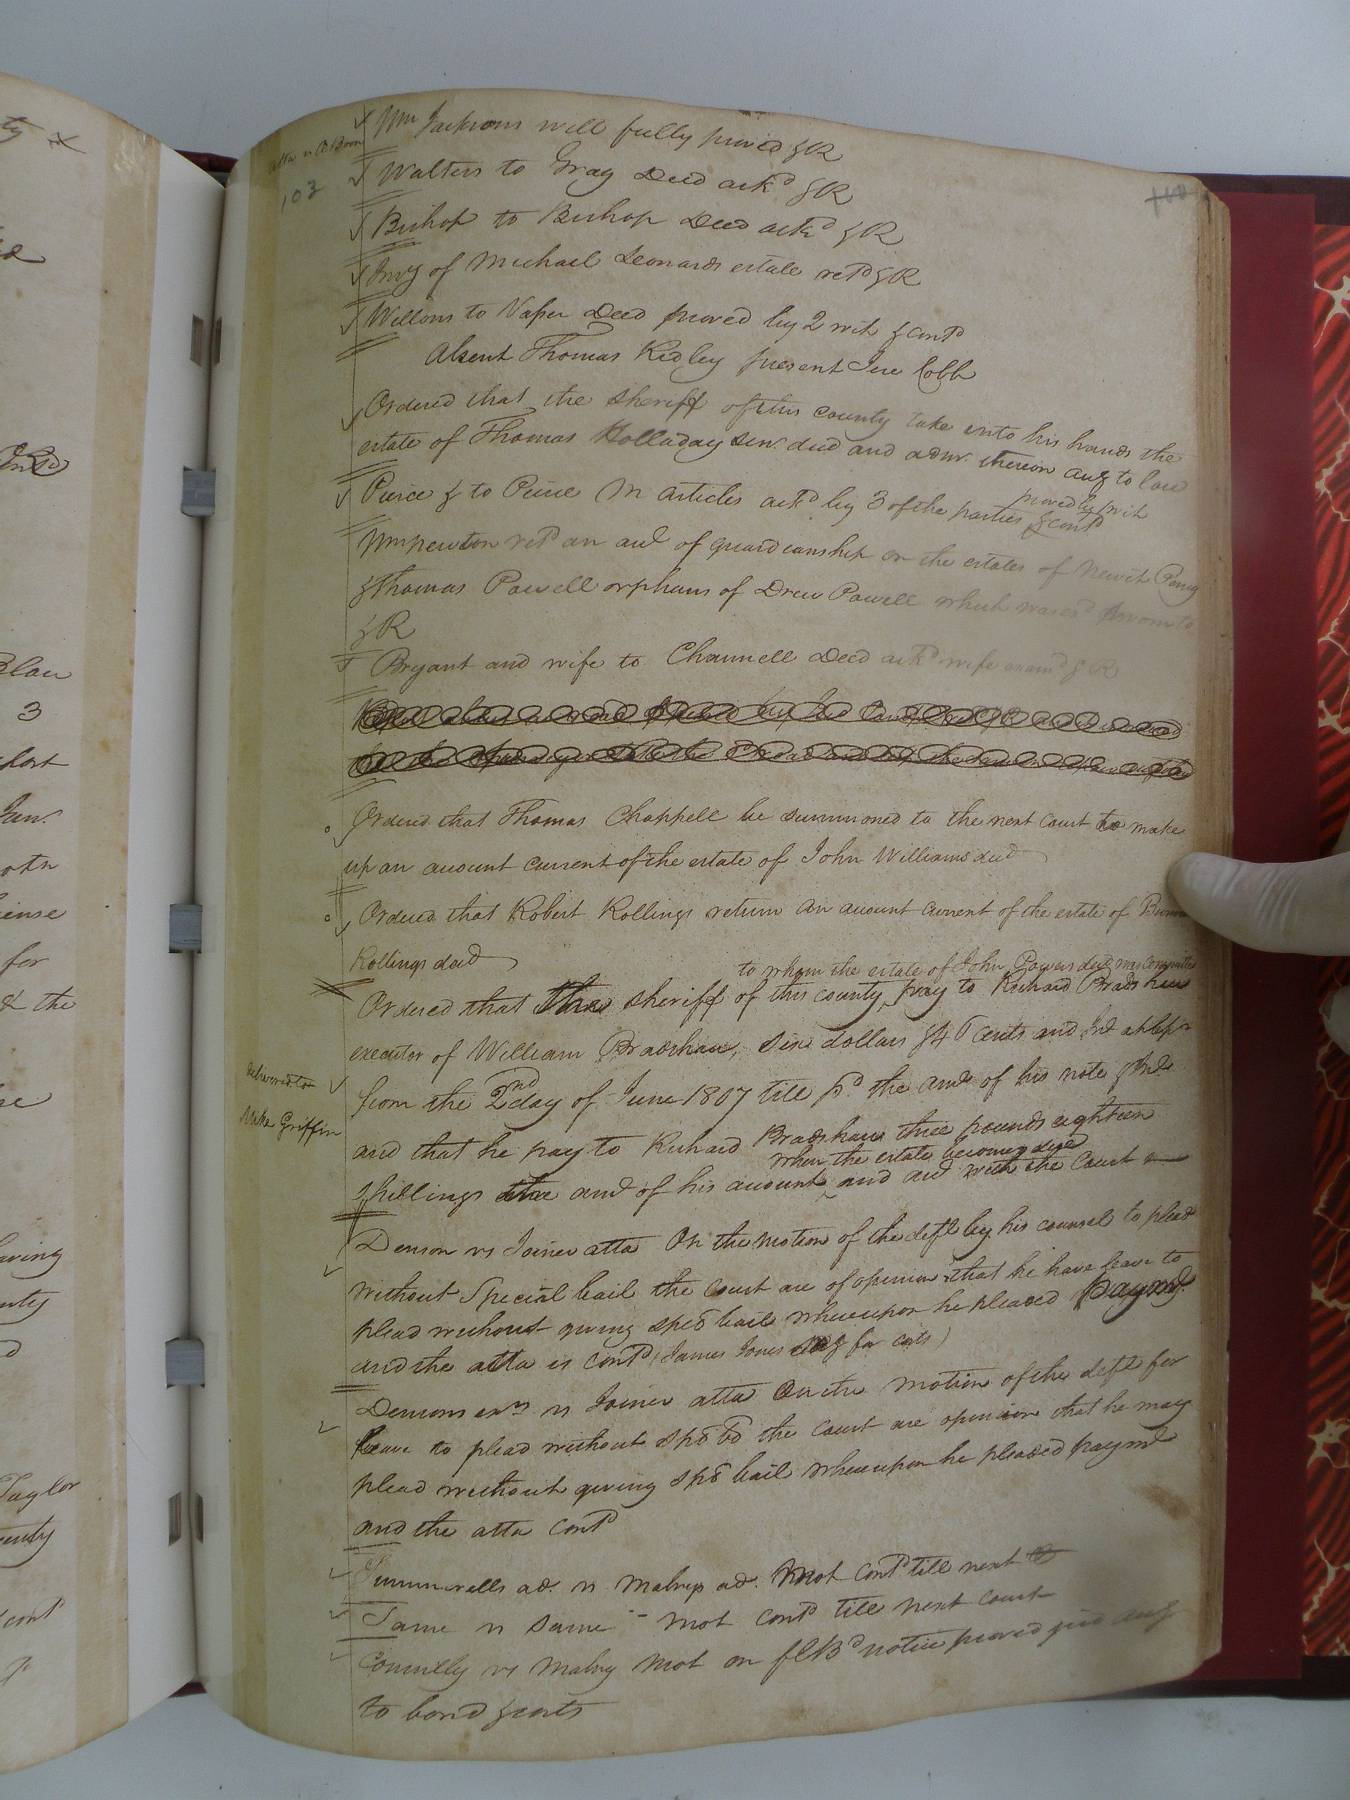 Wm Jacksons will fully proved & R
103
Walters to Gray Deed ackd & R
Bishop to Bishop Deed ackd & R
Invy of Michael Leonards estate retd & R
Willons to Vaser Deed proved by 2 wit & contd
Absent Thomas Ridley present Jere Cobb
Ordered that the sheriff of this county take into his hands the
estate of Thomas Holladay senr. decd and admr. thereon accg to law
Pierce & to Peirce articles ackd by 3 of the parties & contd
proved by wit
Wm Newton retd an acct of guardianship on the estates of
& Thomas Powell orphans of Drew Powell which was sworn to
& R
Bryant and wife to Channell Deed ackd wife examd & R
Ordered that Thomas Chappell be summoned to the next court to make
up an account current of the estate of John Williams decd
Ordered that Robert Rollings return an account current of the estate of
Rollings decd
to whom the estate of John Powers decd was committed
Ordered that the sheriff of this county pay to Richard Bradshaw
executor of William Bradshaw, six dollars & 46 cents and Int
from the 2nd day of June 1807 till pd. the amt of his note & Int
delivered to
Make Griffin
and that he pay to Richard Bradshaw three pounds eighteen
when the estate becomes
shillings the amt of his account and with the Court
Denson vs Joiner atta On the motion of the deft by his counsel to plead
without Special bail the Court are of opinion that he have leave to
plead without giving spl bail whereupon he pleaded paymt.
and the atta is contd (James Jones for costs)
Densons exrs vs Joiner atta On the motion of the deft for
leave to plead without spl the court are opinion that he may
plead without giving spl bail whereupon he pleaded paymt
and the atta contd
Summerells ad. vs Mabrys ad. Mot contd till next
Same vs Same -- mot contd till next court
Connelly vs Mabry mot on notice proved accg
to bond & costs